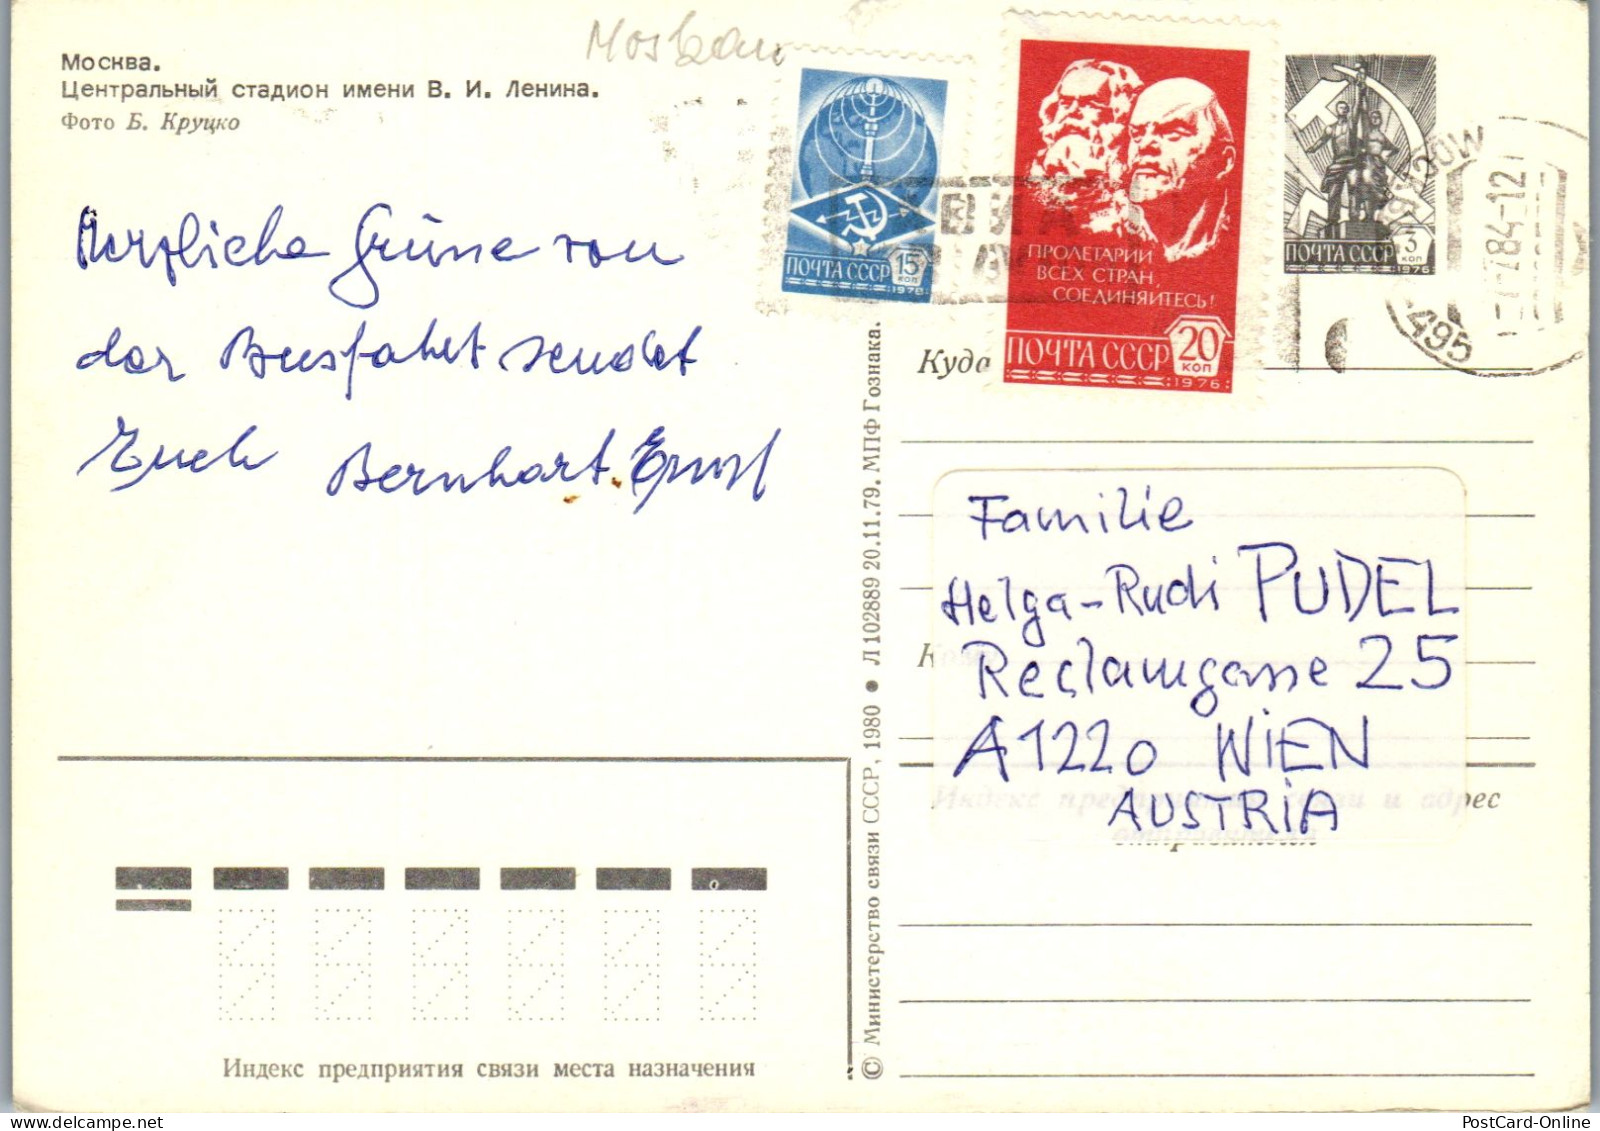 Moskau
Москва.
Центральный стадион имени В. И. Ленина.
Фото Б. Круцко
Herzliche Grüsse von
der Busfahrt sendet
Euch Bernhart Ernst
ПОЧТА СССР 15 КОП
1978
ПРОЛЕТАРИИ
ВСЕХ СТРАН,
СОЕДИНЯЙТЕСЬ!
ПОЧТА СССР 20 КОП
1976
ПОЧТА СССР 3 КОП
1976
АВИА
MOSCOW
84-12
495
Куда
Familie
Helga-Rudi PUDEL
Reclamgasse 25
A1220 WIEN
AUSTRIA
Кому
Индекс предприятия связи и адрес
отправителя
© Министерство связи СССР, 1980 ● Л 102889 20.11.79. МПФ Гознака.
Индекс предприятия связи места назначения
PostCard-Online